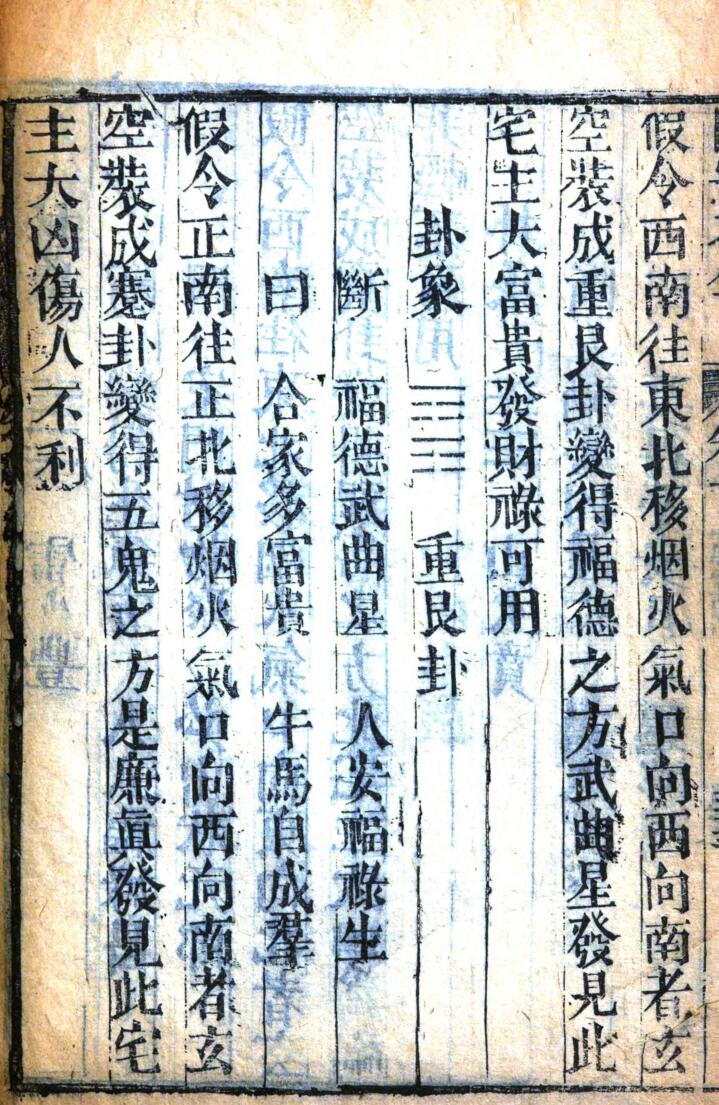 假令西南往東北移烟火氣口向西向南者玄
空裝成重艮卦變得福德之方武曲星發見此
宅主大富貴發財祿可用
卦象 ䷳ 重艮卦
斷 福德武曲星 人安福祿生
曰 合家多富貴 牛馬自成羣
假令正南往正北移烟火氣口向西向南者玄
空裝成蹇卦變得五鬼之方是廉眞發見此宅
主大凶傷人不利